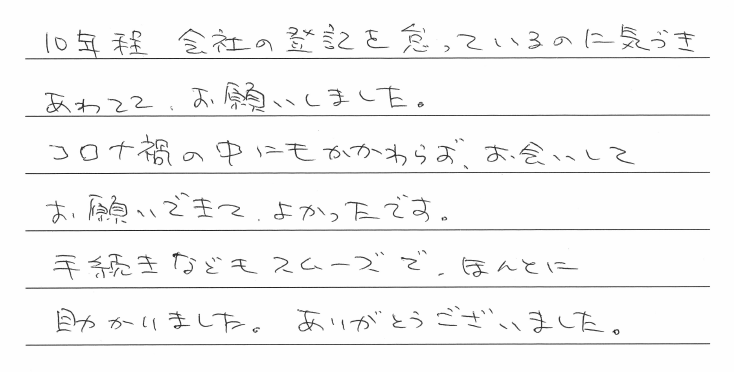 10年程 会社の登記を怠っているのに気づき
あわてて、お願いしました。
コロナ禍の中にもかかわらず、お会いして
お願いできて、よかったです。
手続きなどもスムーズで、ほんとに
助かりました。ありがとうございました。